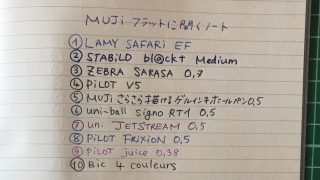 MUJI フラットに開くノート
① LAMY SAFARI EF
② STABILO bl@ck+ Medium
③ ZEBRA SARASA 0,7
④ PILOT V5
⑤ MUJI さらさら描けるゲルインキボールペン 0,5
⑥ uni-ball signo RT1 0,5
⑦ uni JETSTREAM 0,5
⑧ PILOT FRIXION 0,5
⑨ PILOT juice 0,38
⑩ Bic 4 couleurs